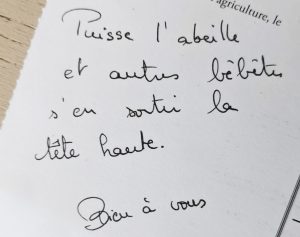 agriculture, le
Puisse l'abeille
et autres bêbêtes
s'en sortir la
tête haute.
Bien à vous